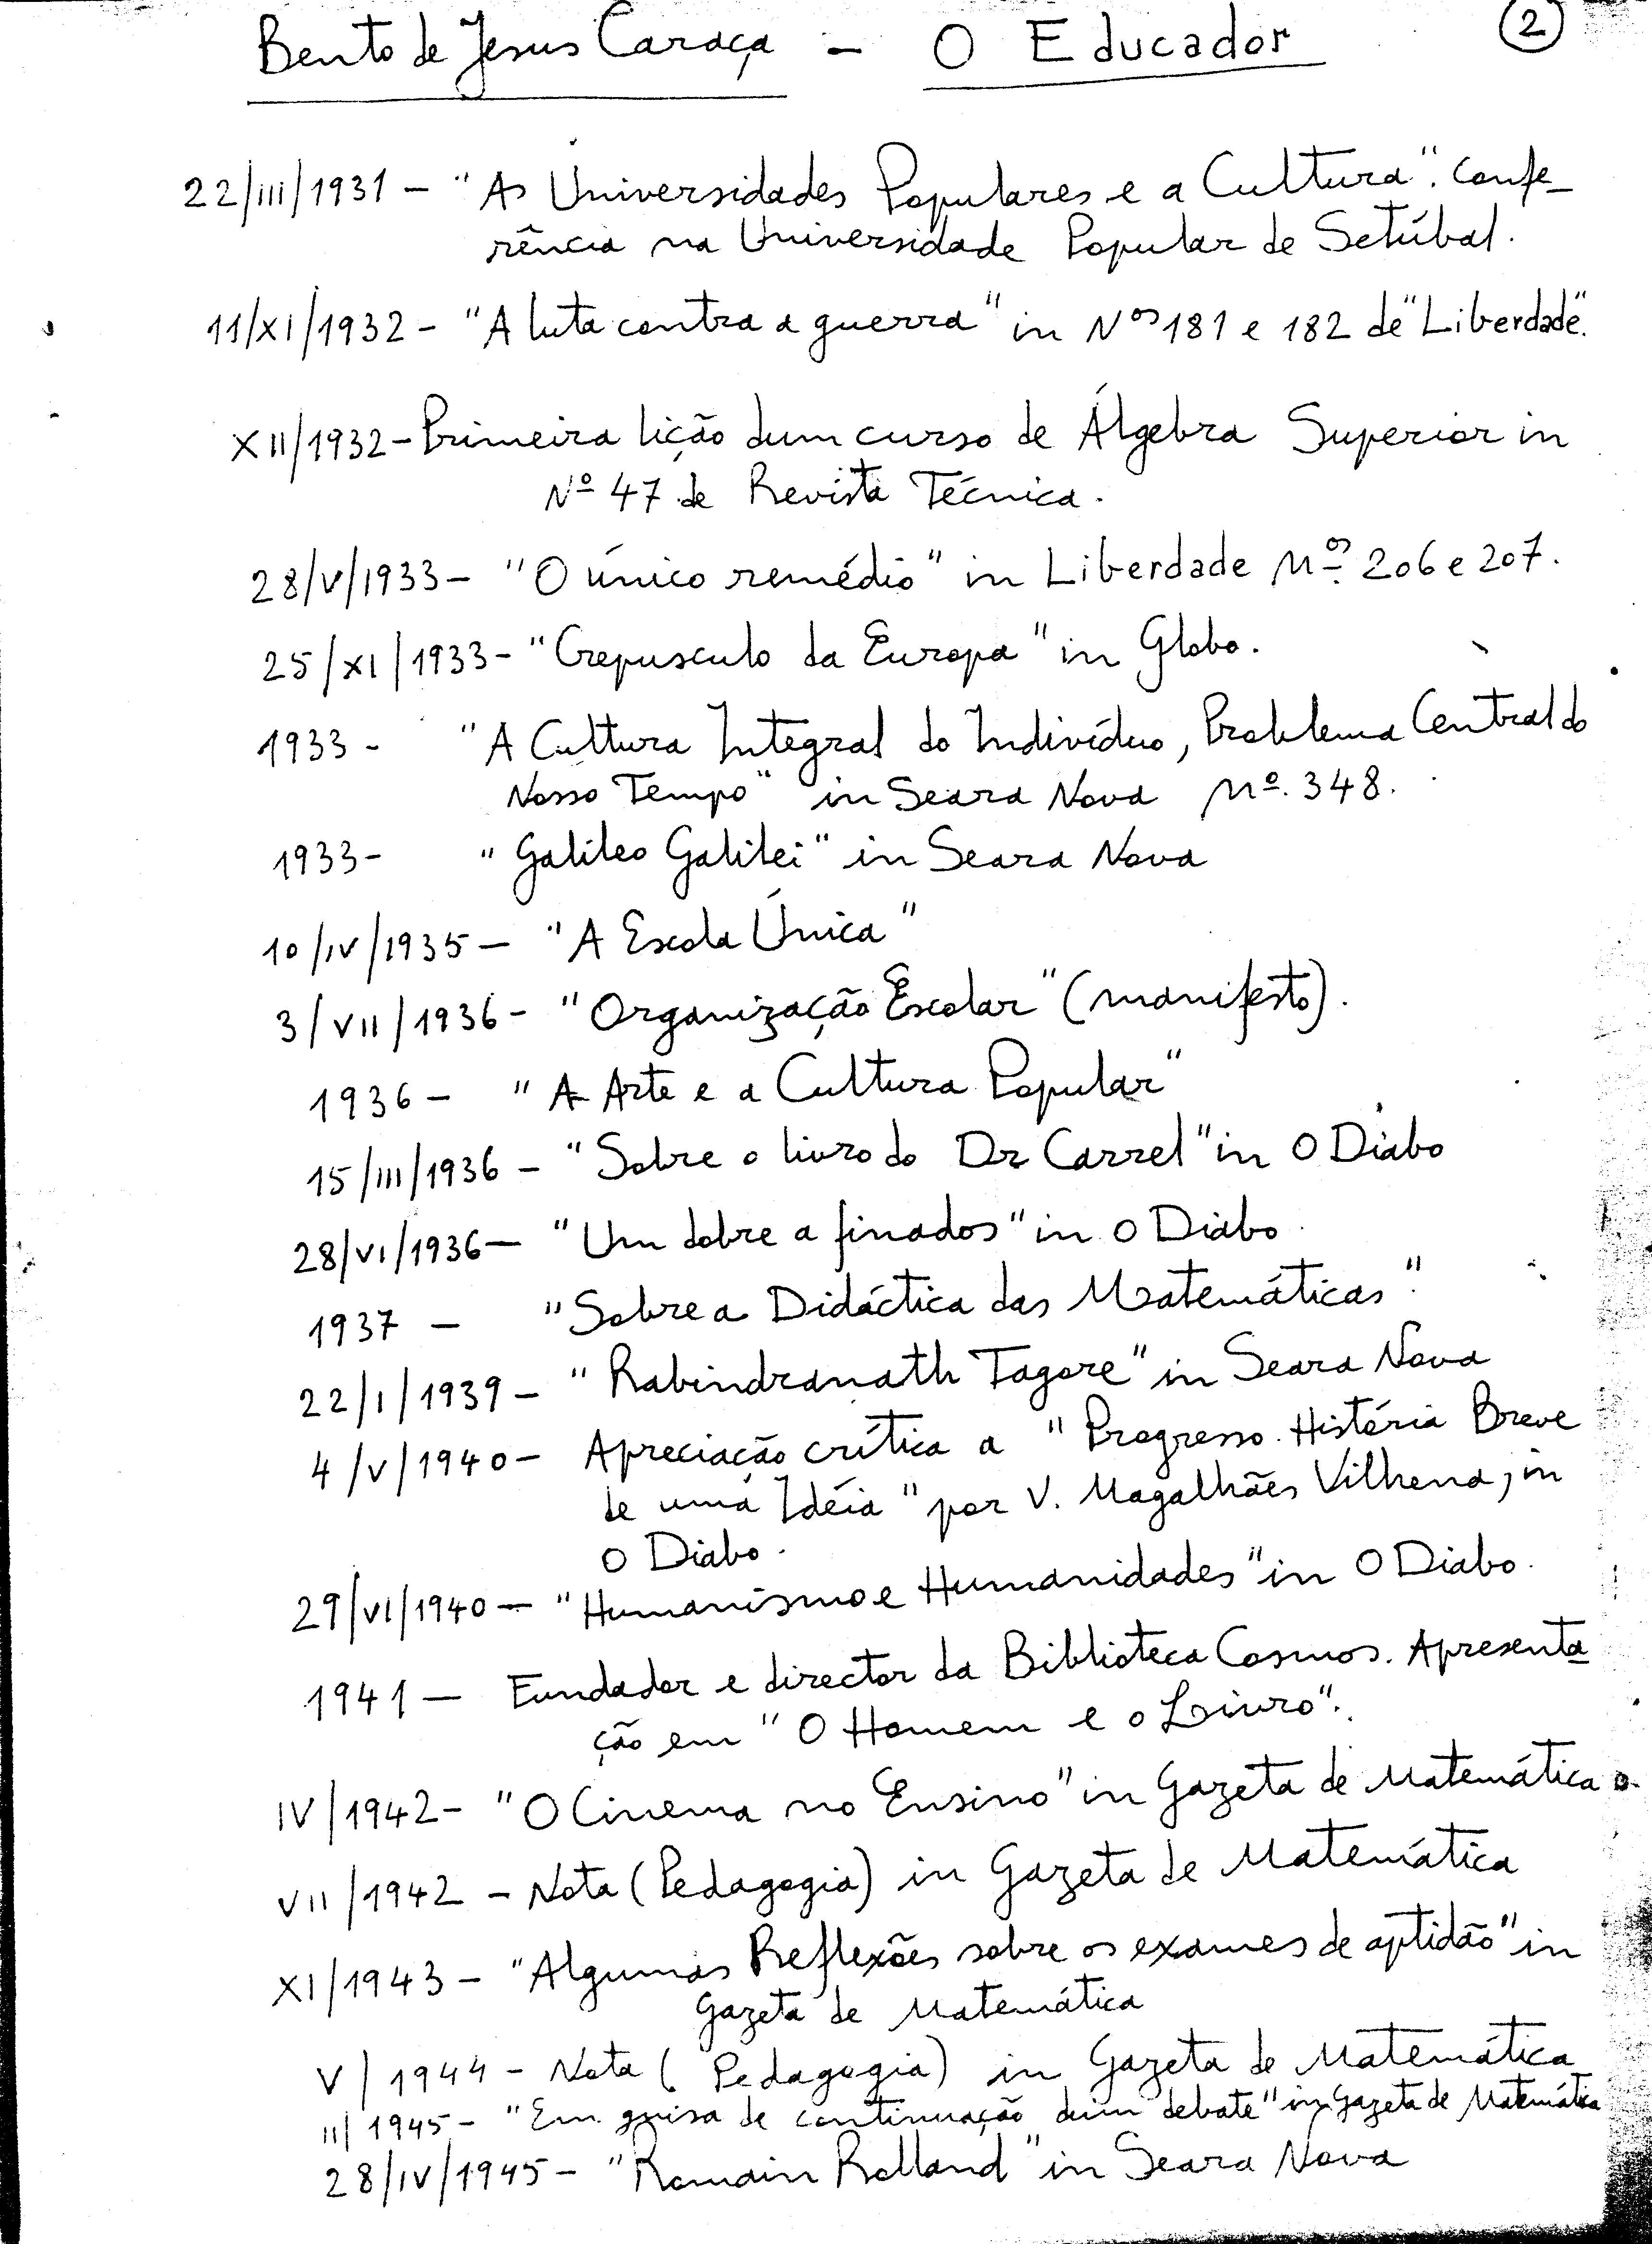 Bento de Jesus Caraça - O Educador
2
22/III/1931 - "As Universidades Populares e a Cultura". Confe-
rência na Universidade Popular de Setúbal.
11/XI/1932 - "A luta contra a guerra" in Nos 181 e 182 de "Liberdade".
XII/1932 - Primeira lição dum curso de Álgebra Superior in
Nº 47 de Revista Técnica.
28/V/1933 - "O único remédio" in Liberdade Nos 206 e 207.
25/XI/1933 - "Crepusculo da Europa" in Globo.
1933 - "A Cultura Integral do Indivíduo, Problema Central do
Nosso Tempo" in Seara Nova Nº. 348.
1933 - "Galileo Galilei" in Seara Nova
10/IV/1935 - "A Escola Única"
3/VII/1936 - "Organização Escolar" (manifesto).
1936 - "A Arte e a Cultura Popular"
15/III/1936 - "Sobre o livro do Dr Carrel" in O Diabo
28/VI/1936 - "Um dobre a finados" in O Diabo
1937 - "Sobre a Didáctica das Matemáticas".
22/I/1939 - "Rabindranath Tagore" in Seara Nova
4/V/1940 - Apreciação crítica a "Progresso. História Breve
de uma Idéia" por V. Magalhães Vilhena, in
O Diabo.
29/VI/1940 - "Humanismo e Humanidades" in O Diabo.
1941 - Fundador e director da Biblioteca Cosmos. Apresenta
ção em "O Homem e o Livro".
IV/1942 - "O Cinema no Ensino" in Gazeta de Matemática
VII/1942 - Nota (Pedagogia) in Gazeta de Matemática
XI/1943 - "Algumas Reflexões sobre os exames de aptidão" in
Gazeta de Matemática
V/1944 - Nota (Pedagogia) in Gazeta de Matemática
II/1945 - "Em guisa de continuação dum debate" in Gazeta de Matemática
28/IV/1945 - "Romain Rolland" in Seara Nova